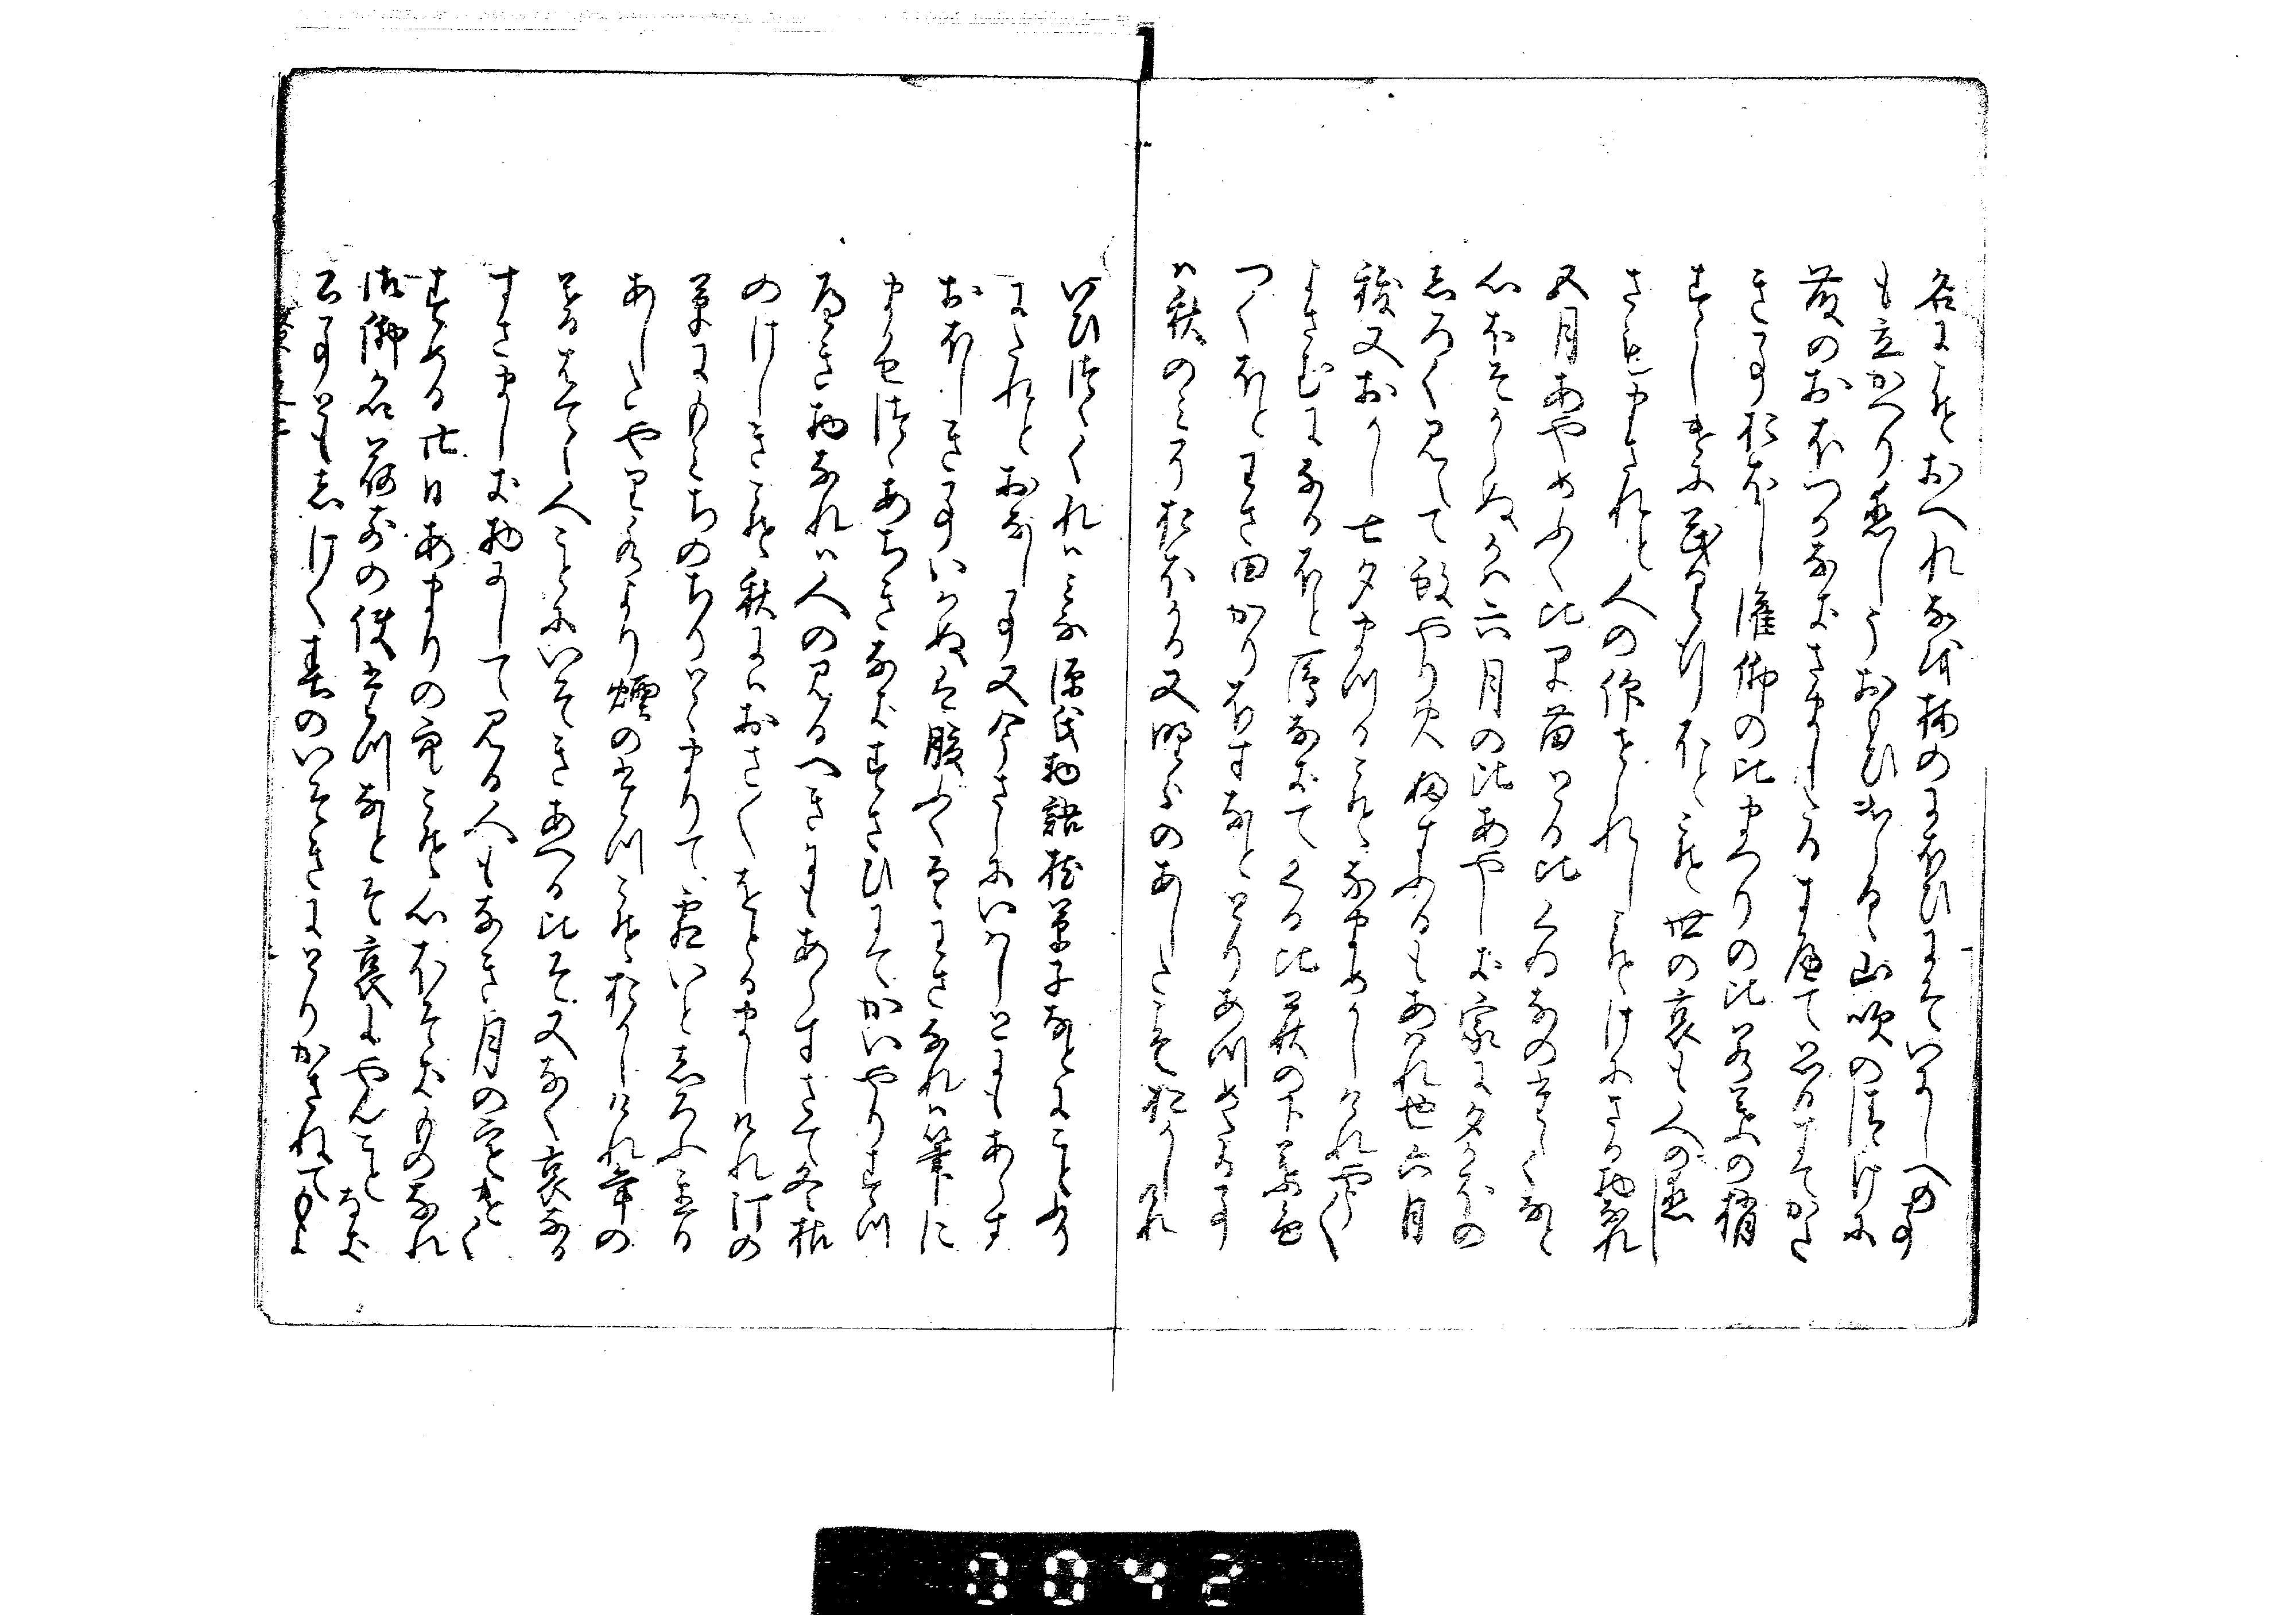 名にこそおへれなを梅のにほひにそいにしへの事
も立かへり恋しうおもひ出らるゝ山吹の清けに
藤のおほつかなきさましたるすへて思ひすてかた
き事おほし灌仏の比まつりの比若葉の梢
すゝしけに茂り行ほとこそ世の哀も人の恋し
さもまされと人の仰せられしこそけにさる物なれ
五月あやめふく比早苗とる比くひなのたゝくなと
心ほそからぬかは六月の比あやしき家に夕かほの
しろく見えて蚊やり火ふすふるもあはれ也六月
祓又おかし七夕まつるこそなまめかしけれやう〳〵
よさむになるほと鴈なきてくる比萩の下葉色
つくほとわさ田かりほすなととりあつめたる事
は秋のみそおほかる又野分のあしたこそおかしけれ
いひつゝくれはみな源氏物語枕草子なとにことふり
にたれとおなし事又今さらにいはしとにもあらす
おほしき事いはぬは腹ふくるゝわさなれは筆に
まかせつゝあちきなきすさひにてかつやりすつ
へき物なれは人の見るへきにもあらすさて冬枯
のけしきこそ秋にはおさ〳〵をとるましけれ汀の
草にもみちのちりとゝまりて霜いとしろふ置る
あしたやり水より煙のたつこそおかしけれ年の
暮はてゝ人ことにいそきあへる比そ又なく哀なる
すさましき物にして見る人もなき月の寒けく
すめる廿日あまりの空こそ心ほそき物なれ
御仏名荷前の使立つなとそ哀にやんことなき
公事ともしけく春のいそきにとりかさねてもよ